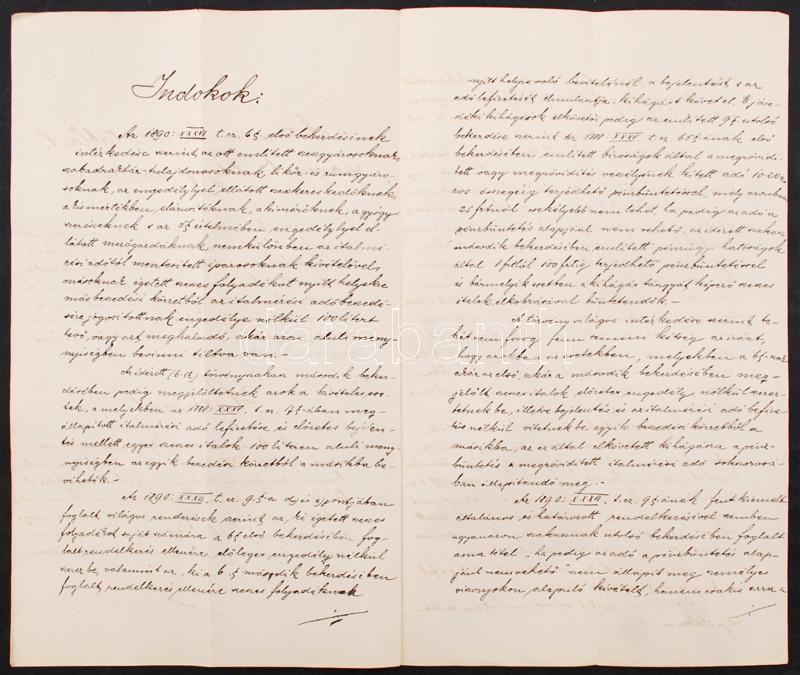 Indokok:
Az 1890: XXXVI t. cz. 6 § első bekezdésének
intézkedése szerint az ott említett szeszgyárosoknak,
szabadraktár-tulajdonosoknak likőr- és rumgyáro-
soknak, az engedélylyel ellátott szeszkereskedőknek,
a kismértékben elárusítóknak, a kimérőknek, a gyógy-
szerészeknek s az 5 § értelmében engedélylyel el-
látott mezőgazdáknak nemkülönben az italmé-
rési adótól mentesített iparosoknak kivételével,
másoknak égetett szeszes folyadékot nyitt helyekre
más beszedési körletből az italmérési adó beszedé-
sére jogosítottnak engedélye nélkül 100 litert
tevő, vagy azt meghaladó, akár azon aluli meny-
nyiségben bevinni tiltva van.
Az idézett (6 §) törvényszakasz második bekez-
désében pedig megjelöltetnek azok a kivételes ese-
tek, a melyekben az 1888: XXXV. t. cz. 17 §-ában meg-
állapított italmérési adó lefizetése és előzetes bejelen-
tés mellett, egyes szeszes italok 100 literen aluli meny-
nyiségben az egyik beszedési körletből a másikba be-
vihetők. -
Az 1890: XXXVI. t. cz. 9 §-a d) és e) pontjában
foglalt világos rendezések szerint az, ki égetett szeszes
folyadékot saját számára a 6 § első bekezdésében fog-
lalt rendelkezés ellenére előleges engedély nélkül
szerez be, valamint az, ki a 6 § második bekezdésében
foglalt rendelkezés ellenére szeszes folyadéknak
nyitt helyre való beviteléről a bejelentést s az
adó lefizetését elmulasztja, kihágást követ el. E jöve-
déki kihágások elkövetői pedig az említett 9 § utolsó
bekezdése szerint az 1888: XXXV. t. cz. 65 §-ának első
bekezdésében említett bíróságok által a megrövidí-
tett vagy megrövidítés veszélyének kitett adó 10-20 sz-
oros összegéig terjedhető pénzbüntetéssel, mely azonban
25 frtnál csekélyebb nem lehet, ha pedig az adó a
pénzbüntetés alapjául nem vehető, az idézett szakasz
második bekezdésében említett pénzügyi hatóságok
által 1 frttól 100 frtig terjedhető pénzbüntetéssel
és bármelyik esetben a kihágás tárgyát képező szeszes
italok elkobzásával büntetendők. -
A törvény világos intézkedése szerint te-
hát nem forog fenn semmi kétség az iránt,
hogy azokban az esetekben, melyekben a 6 §-nak
akár az első, akár a második bekezdésében meg-
jelölt szeszes italok előzetes engedély nélkül szerez-
tetnek be, illetve bejelentés és az italmérési adó lefize-
tés nélkül vitetnek be egyik beszedési körletből a
másikba, az ez által elkövetett kihágásra a pénz-
büntetés a megrövidített italmérési adó sokszorosá-
ban állapítandó meg. -
Az 1890: XXXVI. t. cz. 9 §-ának fent kiemelt
általános és határozott rendelkezésével szemben
ugyanazon szakasznak utolsó bekezdésében foglalt
ama tétel „ha pedig az adó a pénzbüntetés alap-
jául nem vehető" nem állapít meg személyes
viszonyokon alapuló kivételt, hanem csakis arra a
darabanth